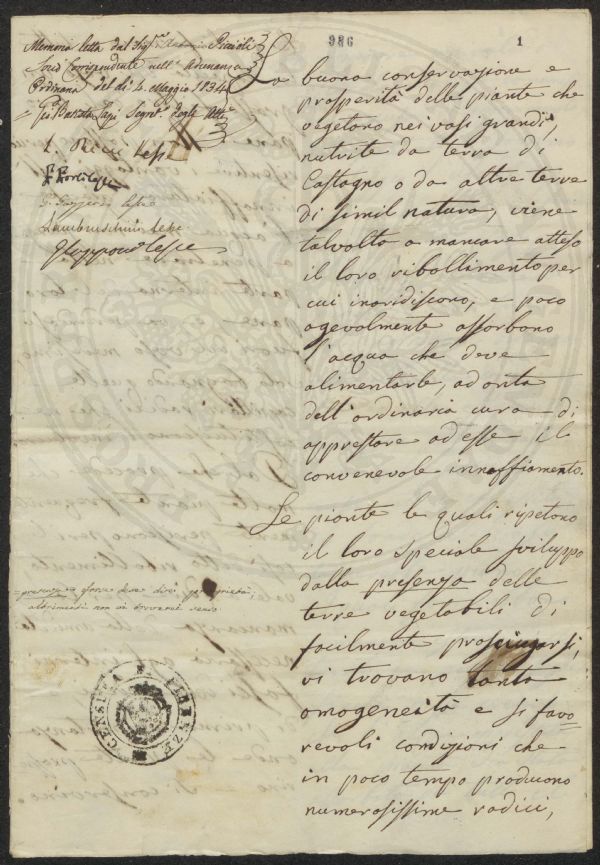 986
1
Memoria letta dal Sig.r Antonio Piccioli
Socio Corrispondente nell' Adunanza
Ordinaria del dì 4. Maggio 1834
Gio Batista Segret.o degli Atti
1. Ricci lesse
Lambruschini lesse
La buona conservazione e
prosperità delle piante che
vegetano nei vasi grandi,
nutrite da terra di
Castagno o da altre terre
di simil natura, viene
talvolta a mancare atteso
il loro ribollimento per
cui inaridiscono, e poco
agevolmente assorbono
l'acqua che deve
alimentarle, ad onta
dell'ordinaria cura di
apprestare ad esse il
convenevole innaffiamento.
Le piante le quali ripetono
il loro speciale sviluppo
dalla presenza delle
terre vegetabili di
facilmente prosciugarsi,
vi trovano tanta
omogeneità e sì favo=
revoli condizioni che
in poco tempo producono
numerosissime radici,
=presenza= forse deve dirsi proprietà,
altrimenti non vi troverei senso
CENSURA FIRENZE